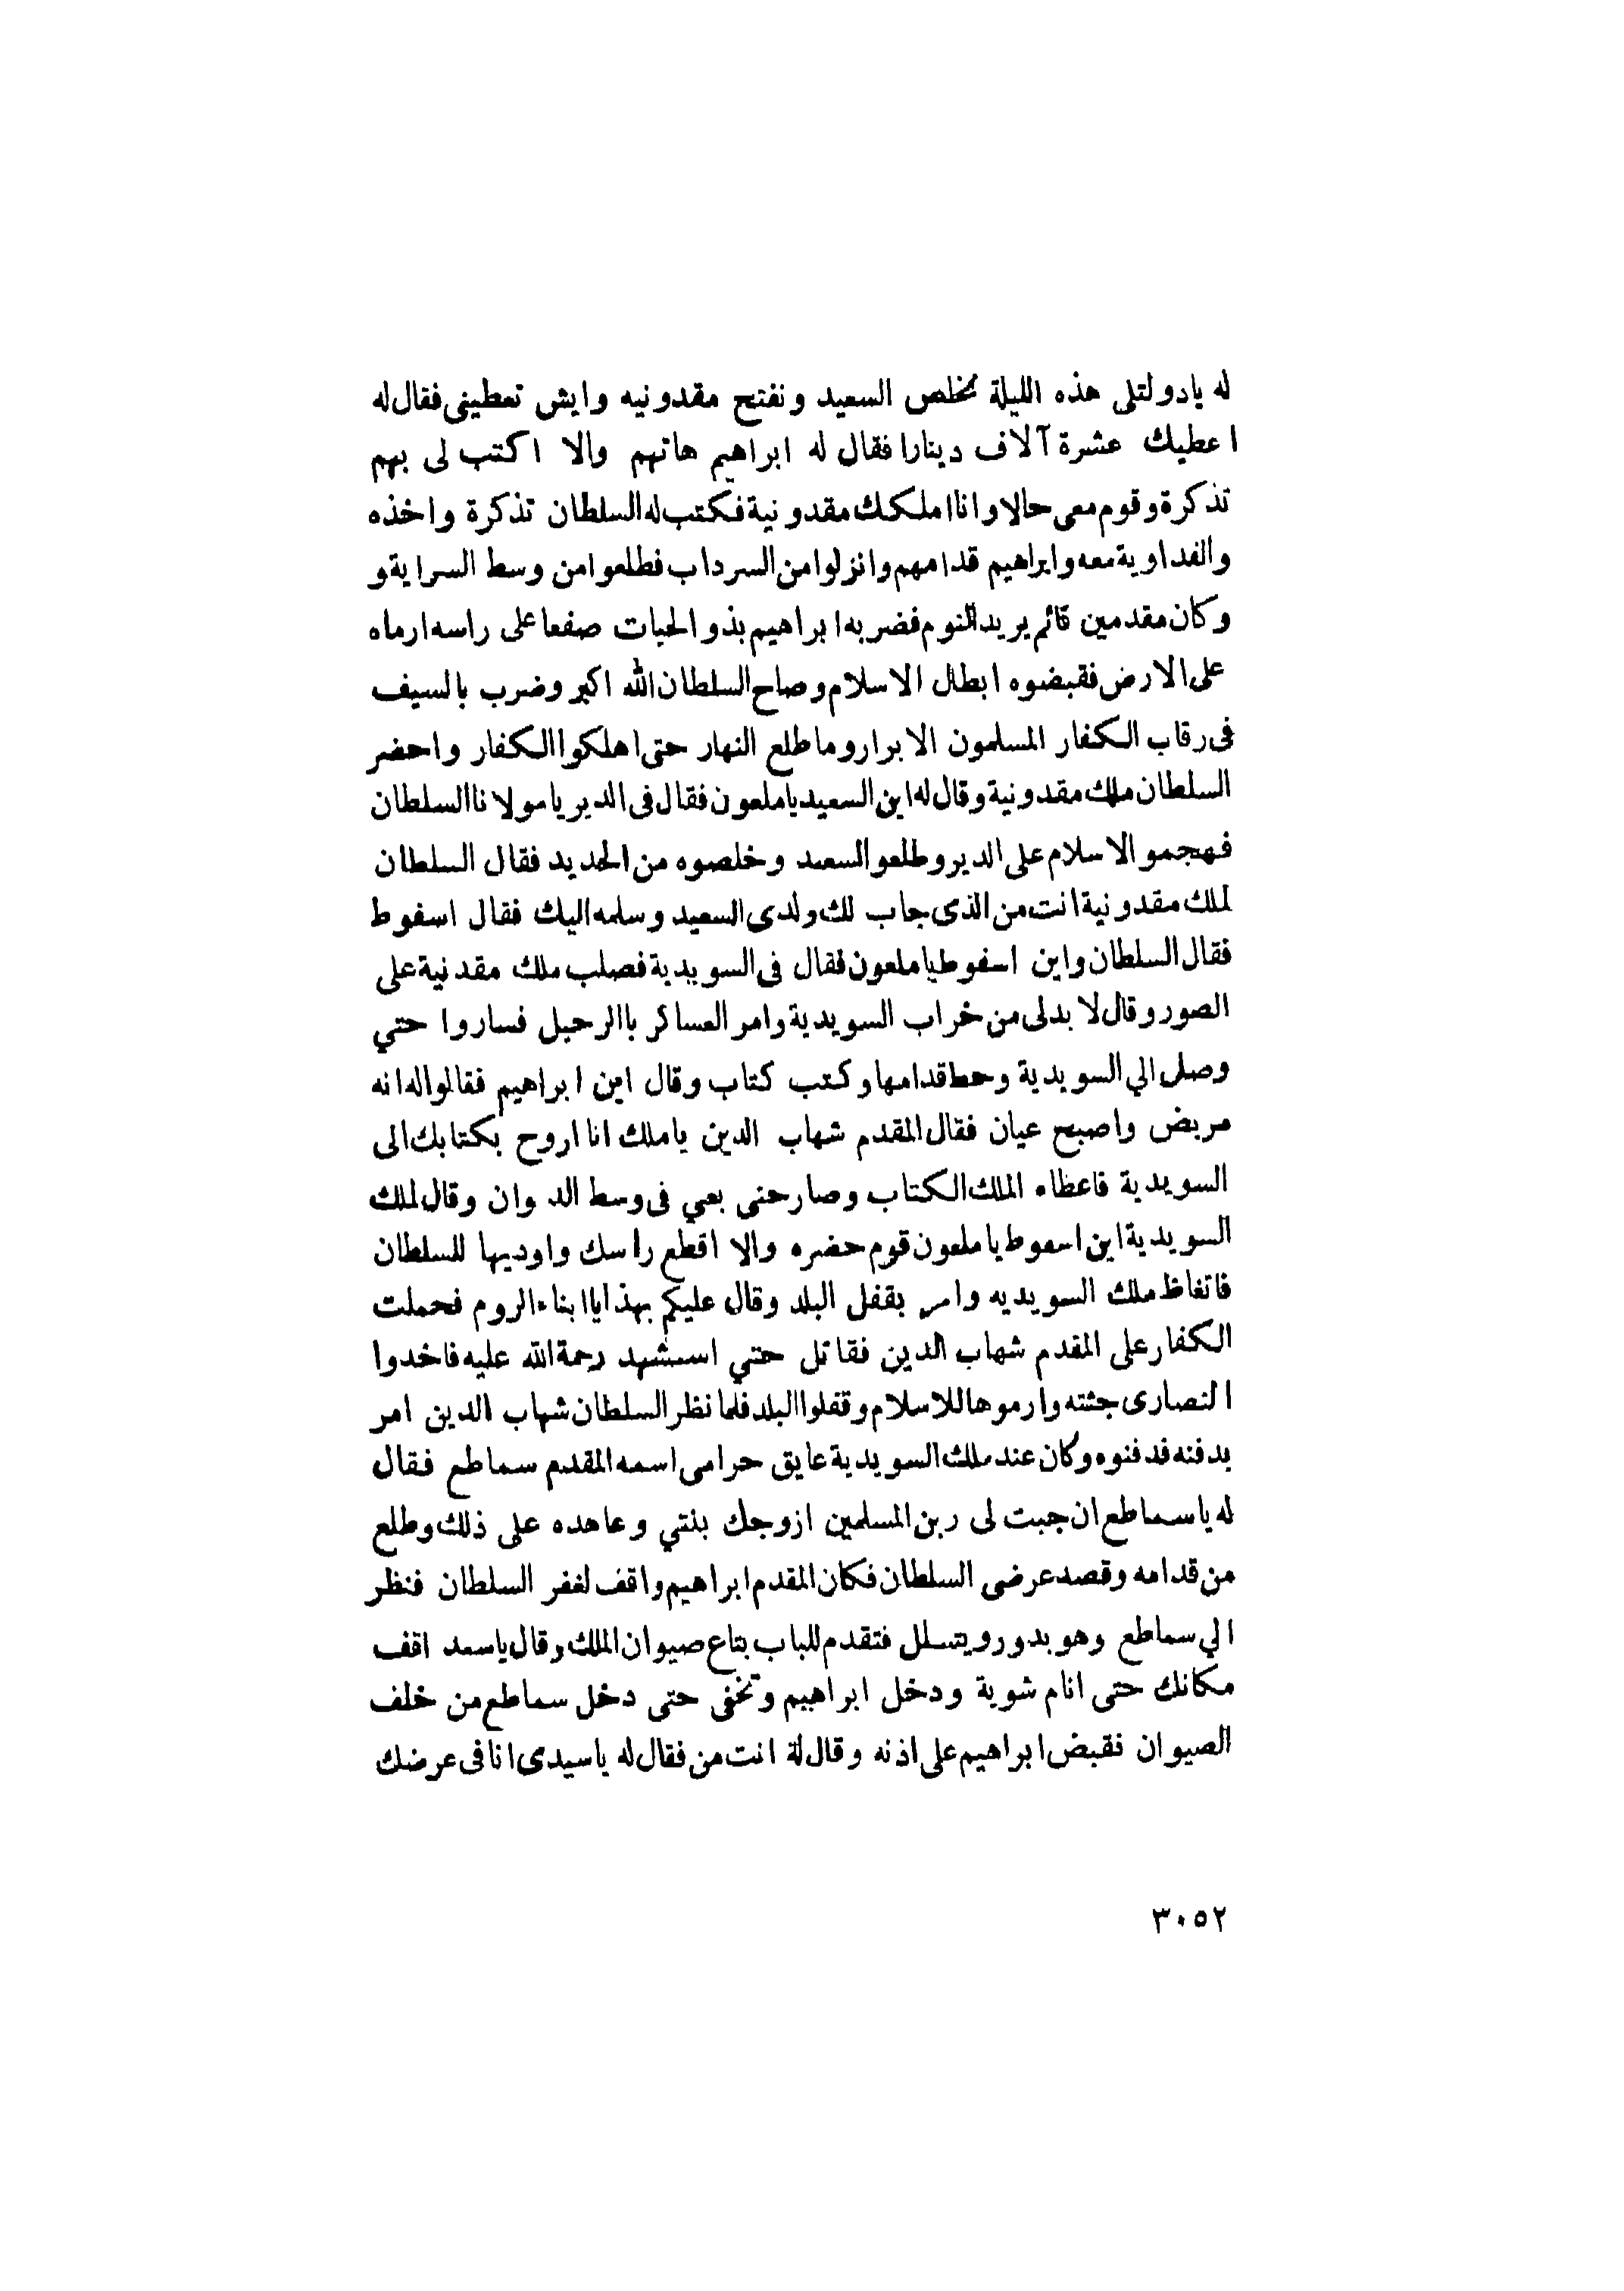 له يادولتلى هذه الليلة نخلص السعيد ونفتح مقدونيه وايش تعطينى فقال له
اعطيك عشرة آلاف دينارا فقال له ابراهيم هاتهم والا اكتب لى بهم
تذكرة وقوم معى حالا وانا املكك مقدونية فكتب له السلطان تذكرة واخذه
والفداوية معه وابراهيم قدامهم وانزلوا من السرداب فطلعوا من وسط السراية و
وكان مقدمين قائم يريد النوم فضربه ابراهيم بذو الحيات صفعا على راسه ارماه
على الارض فقبضوه ابطال الاسلام وصاح السلطان الله اكبر وضرب بالسيف
فى رقاب الكفار المسلمون الابرار وما طلع النهار حتى اهلكوا الكفار واحضر
السلطان ملك مقدونية وقال له اين السعيد ياملعون فقال فى الدير يا مولانا السلطان
فهجمو الاسلام على الدير وطلعو السعيد وخلصوه من الحديد فقال السلطان
لملك مقدونية انت من الذى جاب لك ولدى السعيد وسلمه اليك فقال اسفوط
فقال السلطان واين اسفوط ياملعون فقال فى السويدية فصلب ملك مقدنية على
الصور وقال لا بدلى من خراب السويدية وامر العساكر باالرحيل فساروا حتي
وصلى الي السويدية وحط قدامها وكتب كتاب وقال اين ابراهيم فقالوا له انه
مريض واصبح عيان فقال المقدم شهاب الدين ياملك انا اروح بكتابك الى
السويدية فاعظاه الملك الكتاب وصار حتى بعي فى وسط الد وان وقال لملك
السويدية اين اسفوط ياملعون قوم حضره والا اقطع راسك واوديها للسلطان
فاتغاظ ملك السويديه وامر بقفل البلد وقال عليكم بهذا يا ابناء الروم فحملت
الكفار على المقدم شهاب الدين فقاتل حتي استشهد رحمة الله عليه فاخدوا
النصارى جثته وارموها للاسلام وقفلوا البلد فلما نظر السلطان شهاب الدين امر
بدفنه فدفنوه وكان عند ملك السويدية عايق حرامى اسمه المقدم سماطع فقال
له ياسماطع ان جبت لى رين المسلمين ازوجك بنتي وعاهده على ذلك وطلع
من قدامه وقصد عرضى السلطان فكان المقدم ابراهيم واقف لغفر السلطان فنظر
الي سماطع وهو بدور ويتسلل فتقدم للباب بتاع صيوان الملك وقال ياسعد اقف
مكانك حتى انام شوية ودخل ابراهيم وتخفى حتى دخل سماطع من خلف
الصيوان فقبض ابراهيم على اذنه وقال لة انت من فقال له ياسيدى انا فى عرضك
٣٠٥٢